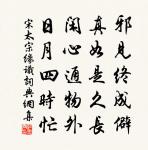 邪見終成僻
真如是久長
閑心通物外
日月四時忙
宋太宗緣識詞典網集